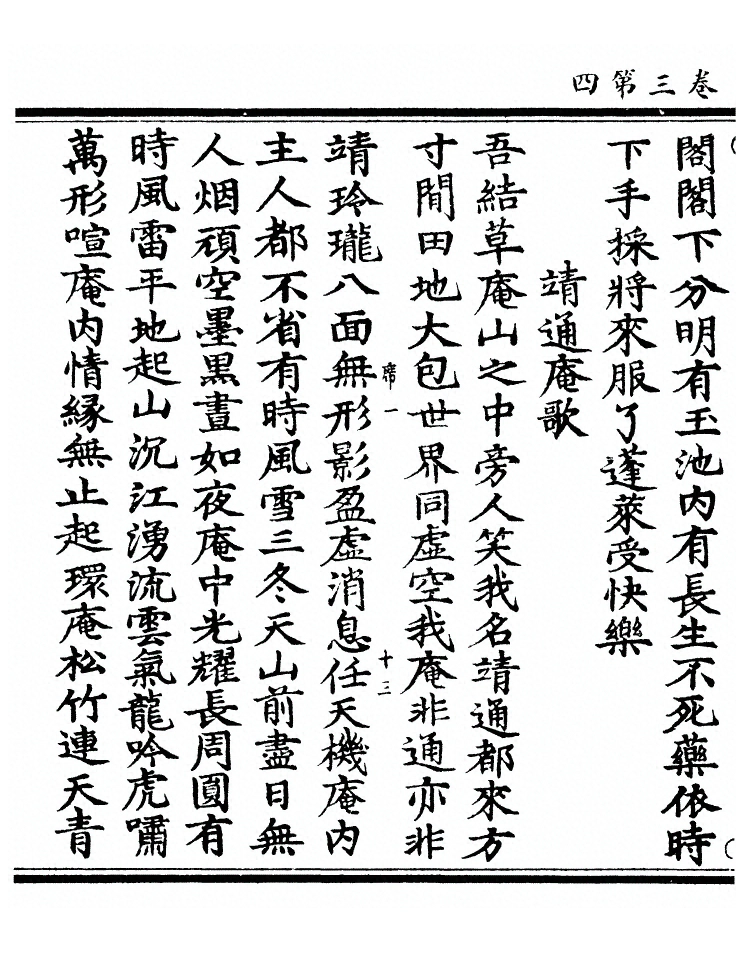 四第三卷
閣閣下分明有玉池內有長生不死藥依時
下手採將來服了蓬萊受快樂
靖通庵歌
吾結草庵山之中旁人笑我名靖通都來方
寸閒田地大包世界同虛空我庵非通亦非
靖玲瓏八面無形影盈虛消息任天機庵內
席一
十三
主人都不省有時風雪三冬天山前盡日無
人烟頑空墨黑晝如夜庵中光耀長周圓有
時風雷平地起山沉江湧流雲氣龍吟虎嘯
萬形喧庵內情緣無止起環庵松竹連天青